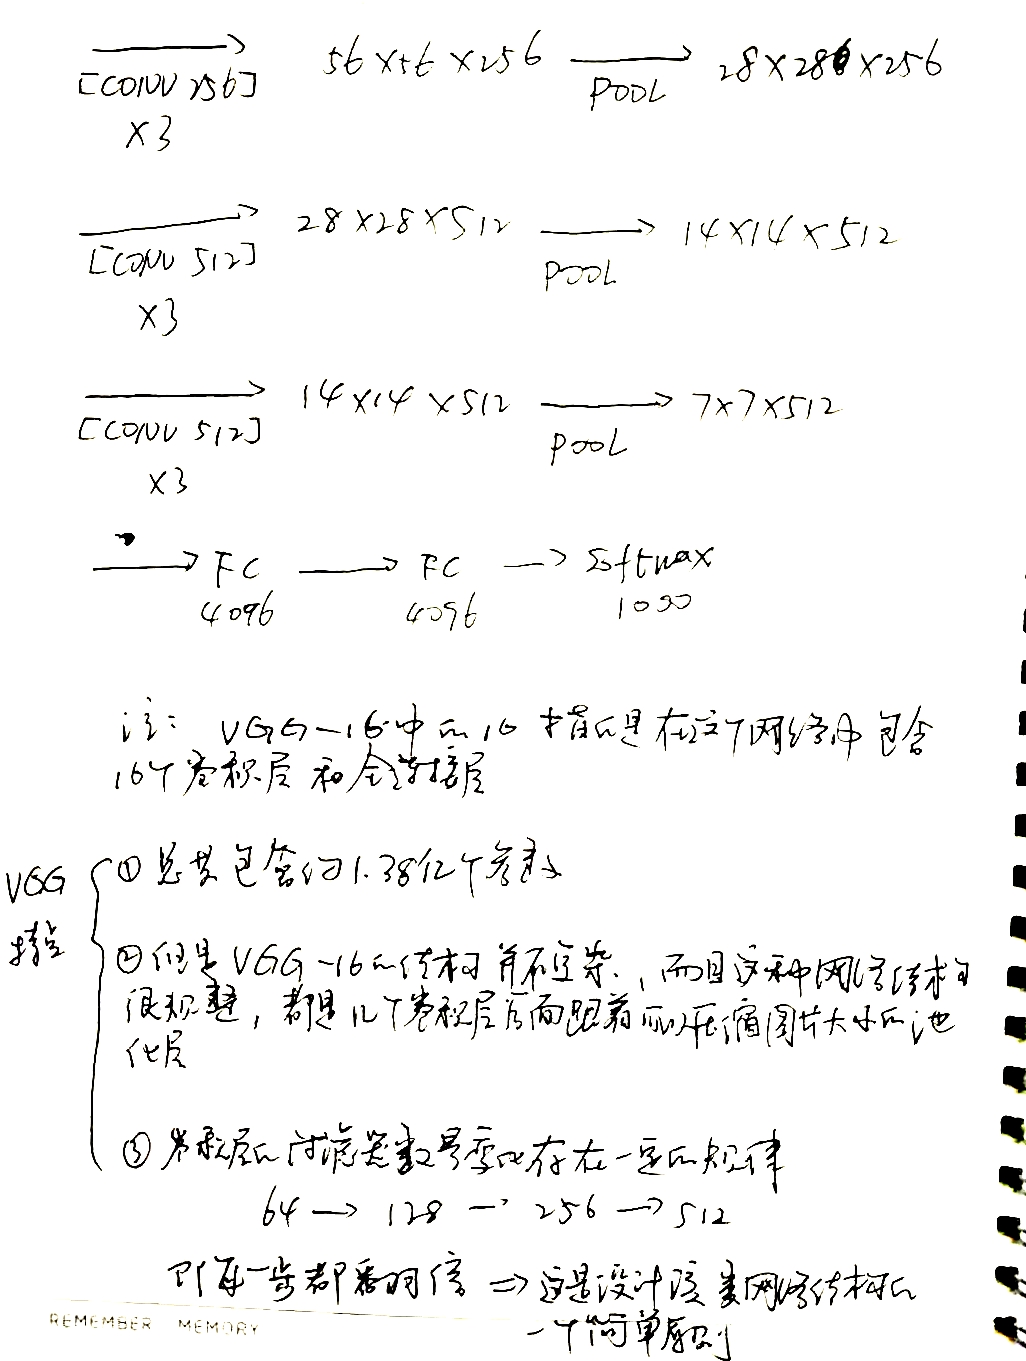 [CONV 256] ×3 → 56×56×256 → POOL 28×28×256
[CONV 512] ×3 → 28×28×512 → POOL 14×14×512
[CONV 512] ×3 → 14×14×512 → POOL 7×7×512
→ FC 4096 → FC 4096 → Softmax 1000
注: VGG-16中的16 指的是在这个网络中包含
16个卷积层和全连接层
VGG 特点
① 总共包含约1.38亿个参数
② 但是VGG-16的结构并不复杂, 而且这种网络结构
很规整, 都是几个卷积层后面跟着可以压缩图片大小的池
化层
③ 卷积层的过滤器数量变化存在一定的规律
64 → 128 → 256 → 512
即每一步都翻倍 ⇒ 这是设计该类网络结构的
一个简单原则
REMEMBER MEMORY